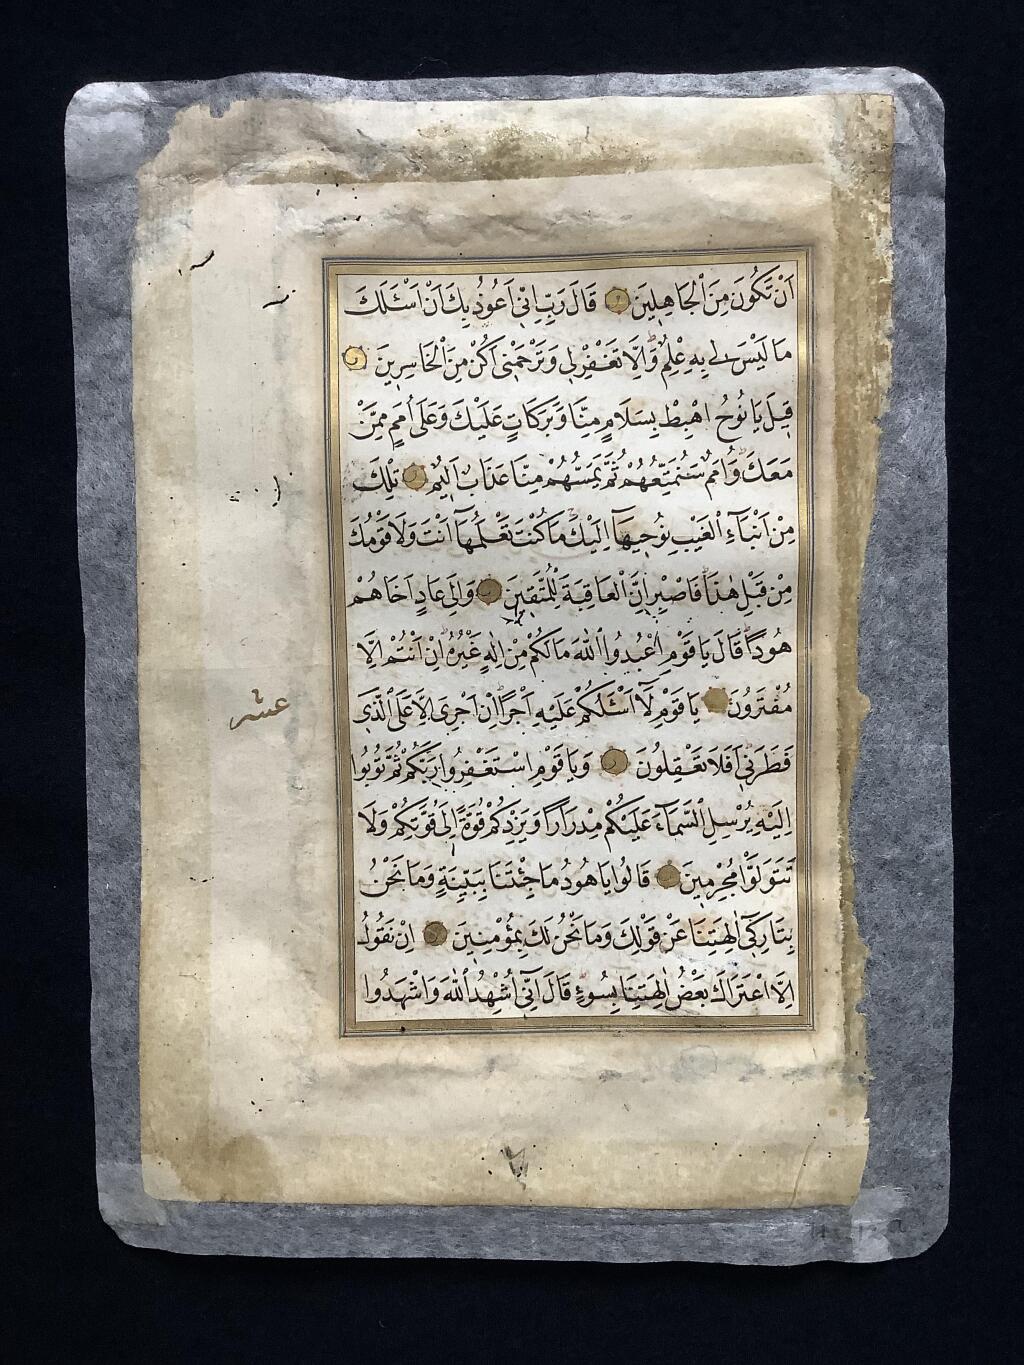 اَنْ تَكُونَ مِنَ الْجَاهِلِينَ قَالَ رَبِّ اِنِّي اَعُوذُ بِكَ اَنْ اَسْئَلَكَ
مَا لَيْسَ لِي بِهِ عِلْمٌ وَاِلَّا تَغْفِرْ لِي وَتَرْحَمْنِي اَكُنْ مِنَ الْخَاسِرِينَ
قِيلَ يَا نُوحُ اهْبِطْ بِسَلَامٍ مِنَّا وَبَرَكَاتٍ عَلَيْكَ وَعَلَى اُمَمٍ مِمَّنْ
مَعَكَ وَاُمَمٌ سَنُمَتِّعُهُمْ ثُمَّ يَمَسُّهُمْ مِنَّا عَذَابٌ اَلِيمٌ تِلْكَ
مِنْ اَنْبَآءِ الْغَيْبِ نُوحِيهَآ اِلَيْكَ مَا كُنْتَ تَعْلَمُهَآ اَنْتَ وَلَا قَوْمُكَ
مِنْ قَبْلِ هٰذَا فَاصْبِرْ اِنَّ الْعَاقِبَةَ لِلْمُتَّقِينَ وَاِلَى عَادٍ اَخَاهُمْ
هُودًا قَالَ يَا قَوْمِ اعْبُدُوا اللّٰهَ مَا لَكُمْ مِنْ اِلٰهٍ غَيْرُهُ اِنْ اَنْتُمْ اِلَّا
مُفْتَرُونَ يَا قَوْمِ لَآ اَسْئَلُكُمْ عَلَيْهِ اَجْرًا اِنْ اَجْرِيَ اِلَّا عَلَى الَّذِي
فَطَرَنِي اَفَلَا تَعْقِلُونَ وَيَا قَوْمِ اسْتَغْفِرُوا رَبَّكُمْ ثُمَّ تُوبُوا
اِلَيْهِ يُرْسِلِ السَّمَآءَ عَلَيْكُمْ مِدْرَارًا وَيَزِدْكُمْ قُوَّةً اِلَى قُوَّتِكُمْ وَلَا
تَتَوَلَّوْا مُجْرِمِينَ قَالُوا يَا هُودُ مَا جِئْتَنَا بِبَيِّنَةٍ وَمَا نَحْنُ
بِتَارِكِي اٰلِهَتِنَا عَنْ قَوْلِكَ وَمَا نَحْنُ لَكَ بِمُؤْمِنِينَ اِنْ نَقُولُ
اِلَّا اعْتَرَاكَ بَعْضُ اٰلِهَتِنَا بِسُوءٍ قَالَ اِنِّي اُشْهِدُ اللّٰهَ وَاشْهَدُوا
عشر